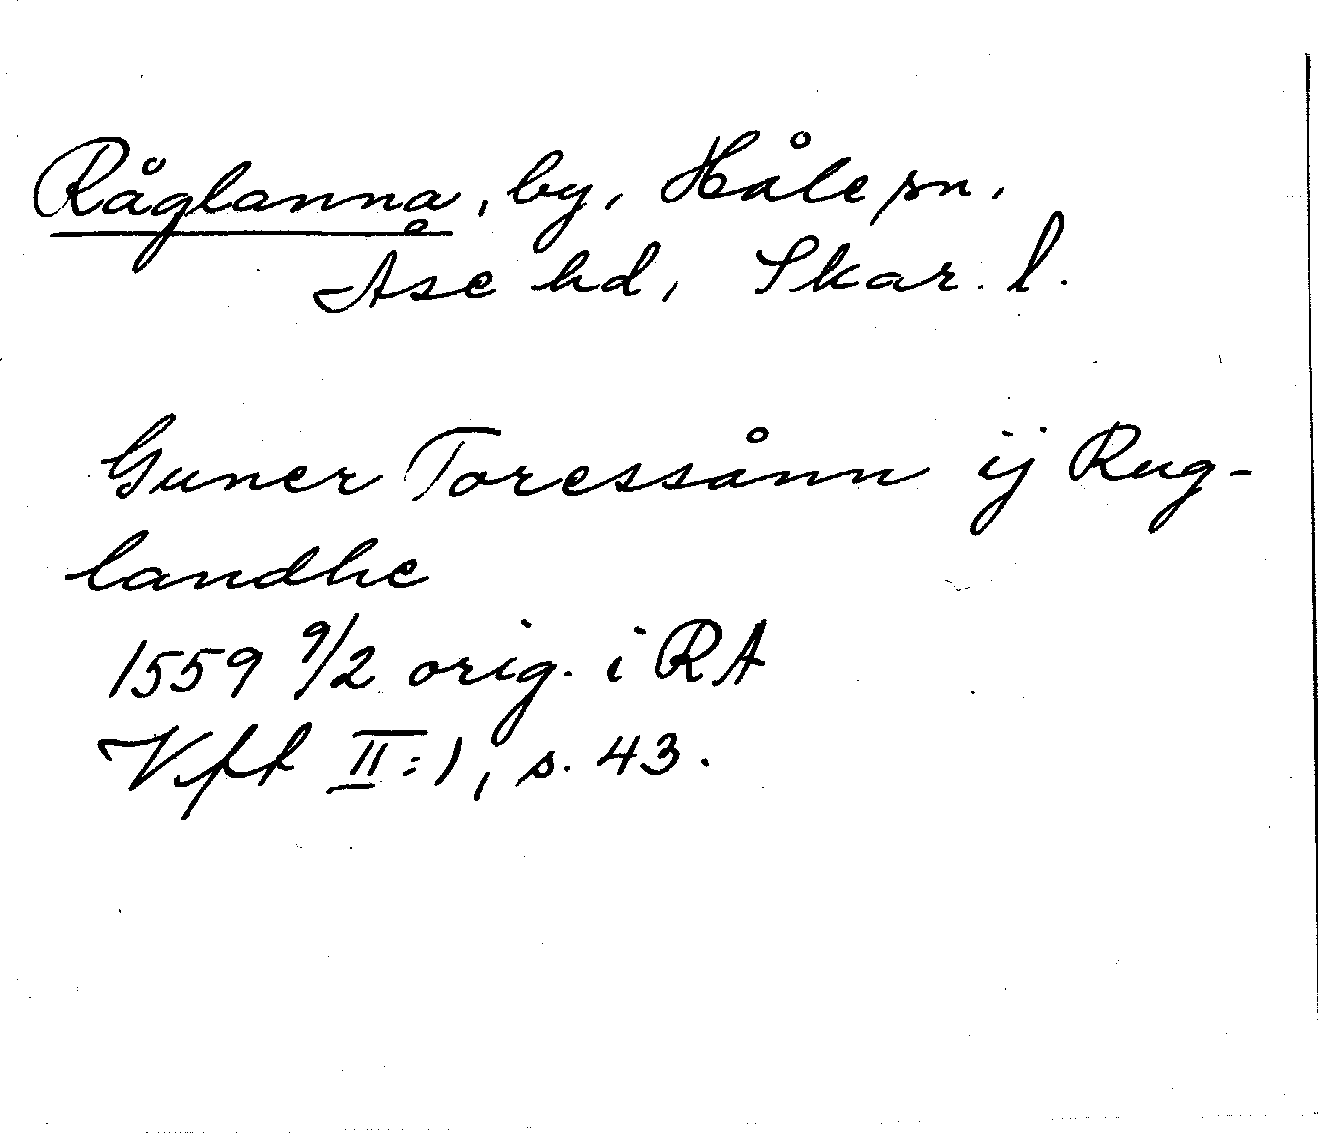 Råglanna, by, Håle sn,
Åse hd, Skar. l.
Guner Toressånn ij Rug-
landhe
1559 9/2 orig. i RA
Vfft II:1, s. 43.